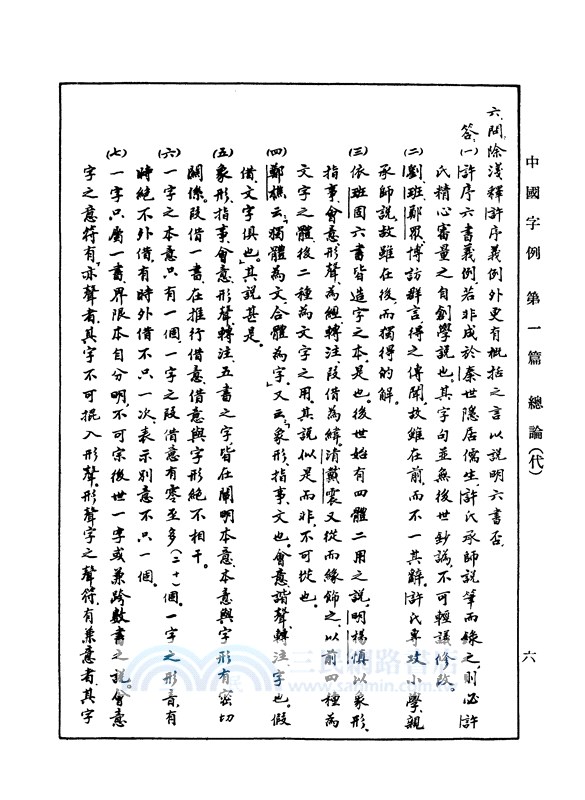 中國字例 第一篇 總論(代) 六
六、問、除淺釋許序義例外、更有概括之言以說明六書否、
答、(一)許序六書義例、若非成於秦世隱居儒生、許氏承師說筆而錄之、則必許
氏精心審量之自創學說也。其字句並無後世鈔譌、不可輕議修改。
(二)劉班鄭眾、博訪群言、得之傳聞、故雖在前、而不一其辭。許氏專攻小學、親
承師說、故雖在後、而獨得的解。
(三)依班固六書皆造字之本、是也。後世始有四體二用之說、明楊慎以象形、
指事、會意、形聲、為經、轉注、叚借為緯、清戴震又從而緣飾之、以前四種為
文字之體、後二種為文字之用。其說似是而非、不可從也。
(四)鄭樵云、「獨體為文、合體為字。」又云、「象形、指事、文也。會意諧聲、轉注、字也。假
借、文字俱也。」其說甚是。
(五)象形、指事、會意、形聲、轉注、五書之字、皆在闡明本意、本意與字形有密切
關係。叚借一書、在推行借意、借意與字形絕不相干。
(六)一字之本意只有一個、一字之叚借意有零至多(二十)個。一字之形音、有
時絕不外借、有時外借不只一次、表示別意不只一個。
(七)一字只屬一書、界限本自分明、不可宗後世一字或兼跨數書之說。會意
字之意符有「亦聲」者、其字不可混入形聲、形聲字之聲符、有兼意者、其字
三民網路書店
www.sanmin.com.tw